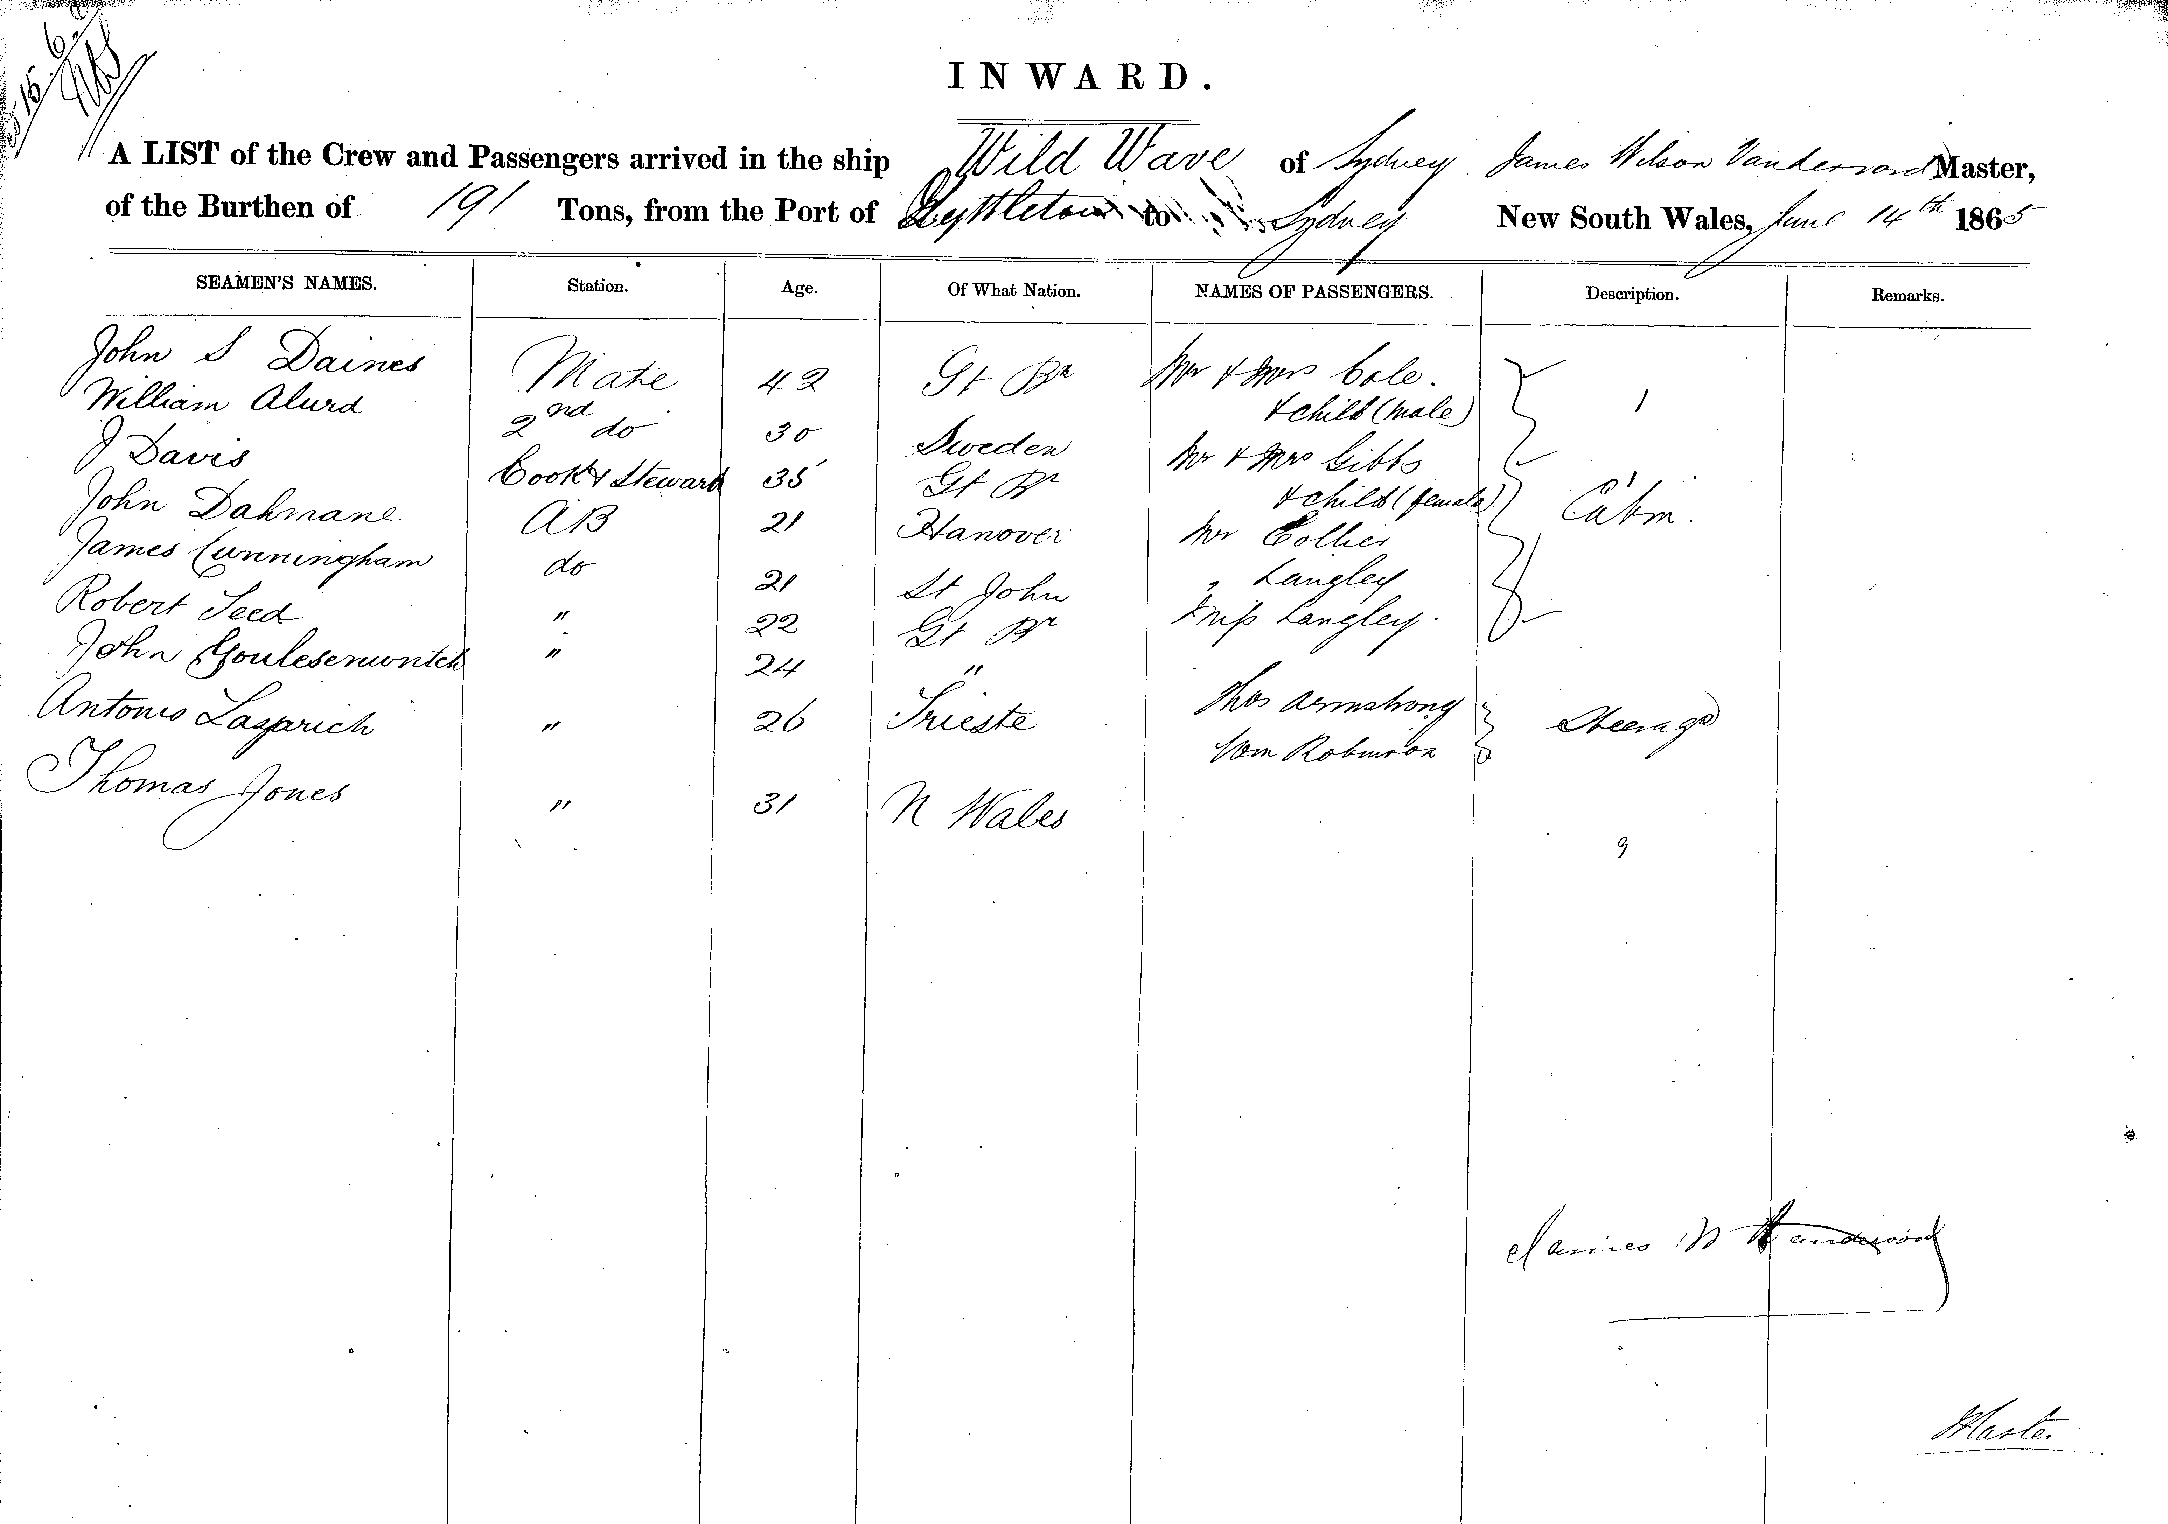 15 6
INWARD.
A LIST of the Crew and Passengers arrived in the ship Wild Wave of Sydney James Wilson Vandervord Master,
of the Burthen of 191 Tons, from the Port of Lyttleton to Sydney New South Wales, June 14th 1865
SEAMEN'S NAMES. Station. Age. Of What Nation. NAMES OF PASSENGERS. Description. Remarks.
John S Daines Mate 42 Gt Bn Mr & Mrs Cole.
& child (male) 1
William Alurd 2nd do 30 Sweden Mr & Mrs Gibbs
J Davis Cook & Steward 35 Gt Br & child (female) Cabin.
John Dahmane AB 21 Hanover Mr Collier
James Cunningham do 21 St John " Langley
Robert Seed " 22 Gt Br & Miss Langley.
John " 24 "
Antonio Lazarich " 26 Trieste Thos Armstrong Steerage
Wm Robinson
Thomas Jones " 31 N Wales
9
James W Vandervord
Master